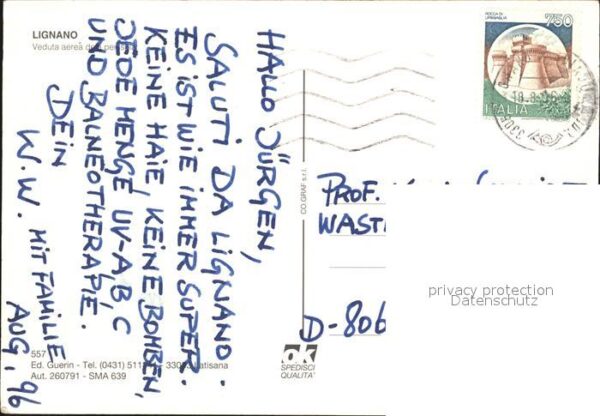 LIGNANO
Veduta aerea
HALLO JÜRGEN,
SALUTI DA LIGNANO.
ES IST WIE IMMER SUPER.
KEINE HAIE, KEINE BOMBEN,
JEDE MENGE UV-A,B,C
UND BALNEOTHERAPIE.
DEIN
W.W. MIT FAMILIE
AUG, 96
557
Ed. Guerin - Tel. (0431) Latisana
Aut. 260791 - SMA 639
CO.GRAF s.r.l.
ok
SPEDISCI
QUALITA'
ROCCA DI
URBISAGLIA
750
ITALIA
PROF.
D-806
privacy protection
Datenschutz